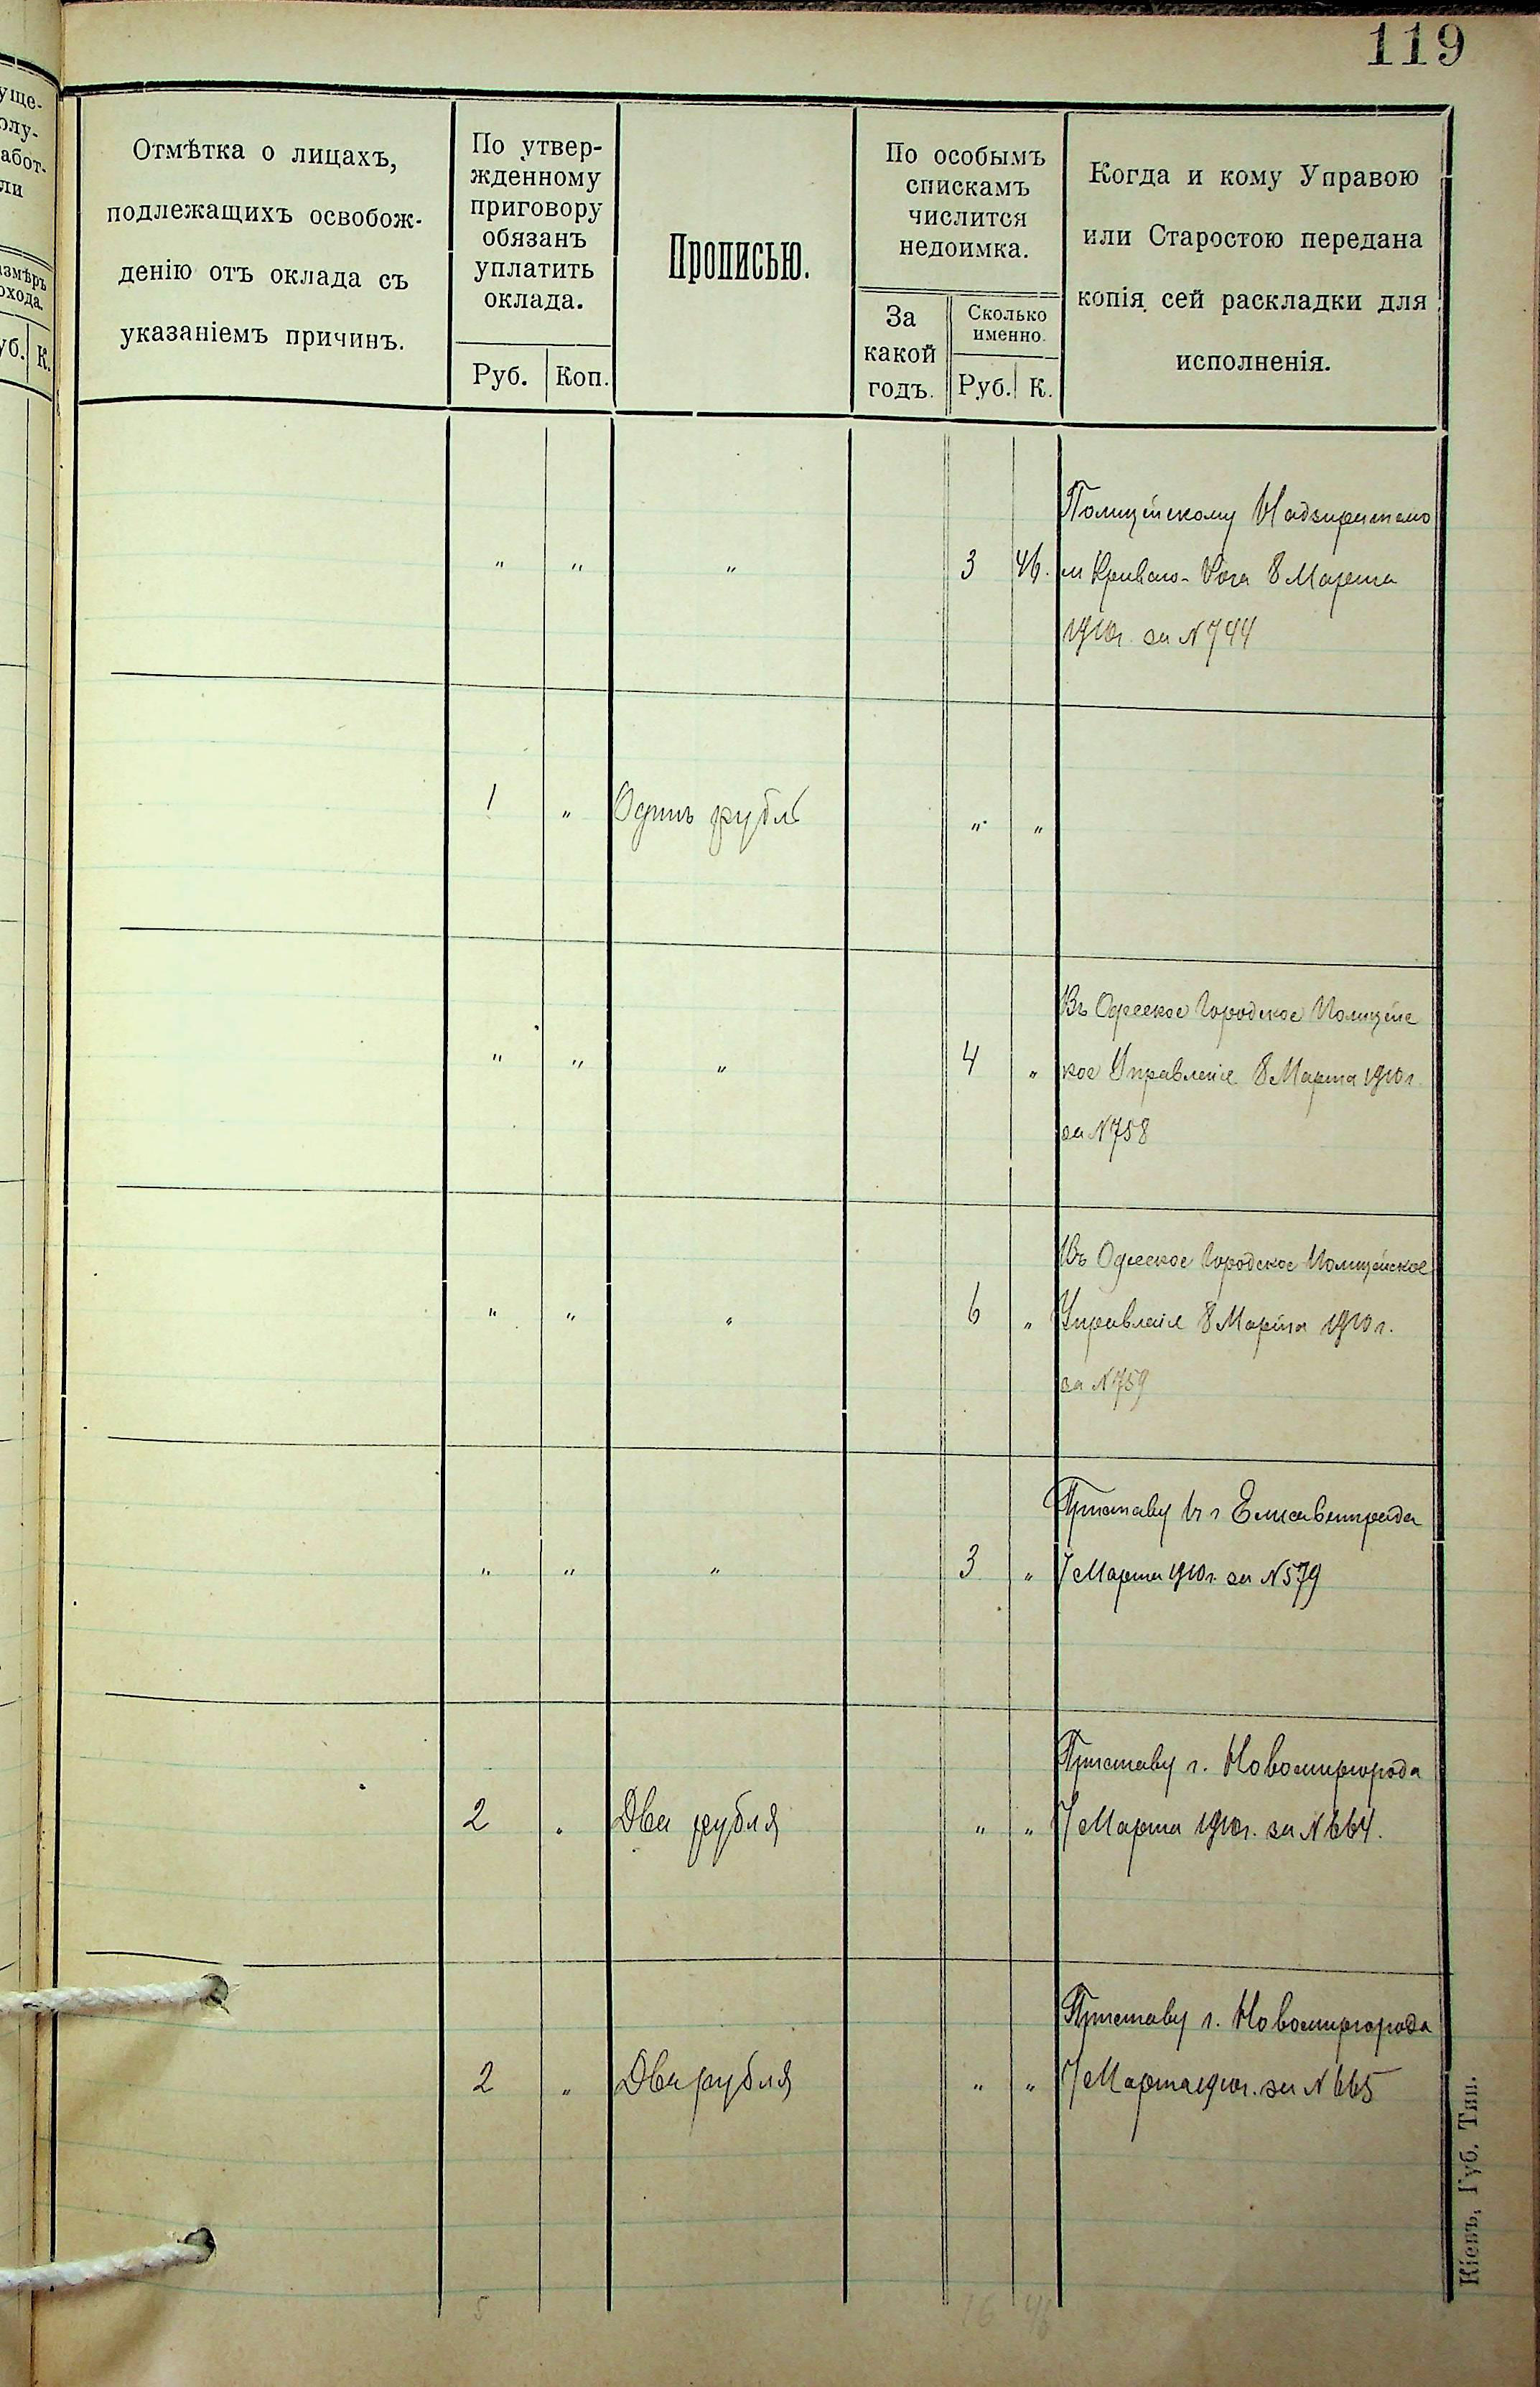 119
уще-
олу-
абот-
ли
змѣръ
охода.
уб. К.
Отмѣтка о лицахъ,
подлежащихъ освобож-
денію отъ оклада съ
указаніемъ причинъ.
По утвер-
жденному
приговору
обязанъ
уплатить
оклада.
Руб. Коп.
Прописью.
По особымъ
спискамъ
числится
недоимка.
За
какой
годъ.
Сколько
именно.
Руб. К.
Когда и кому Управою
или Старостою передана
копія сей раскладки для
исполненія.
Полицейскому Надзирателю
" " " 3 46. м Кривого-Рога 8 Марта
1910г. за N 744
1 " Одинъ рубль " "
Въ Одесское Городское Полицейс
" " " 4 " кое Управленіе 8 Марта 1910 г.
за N 758
Въ Одесское Городское Полицейское
" " " 6 " Управленіе 8 Марта 1910 г.
за N 759
Приставу г Елисаветграда
" " " 3 " 7 Марта 1910 г. за N 579
Приставу г. Новомиргорода
2 " Два рубля " " 7 Марта 1910г. за N 664.
Приставу г. Новомиргорода
2 " Два рубля " " 7 Марта 1910г. за N 665
5 16 46
Кіевъ, Губ. Тип.